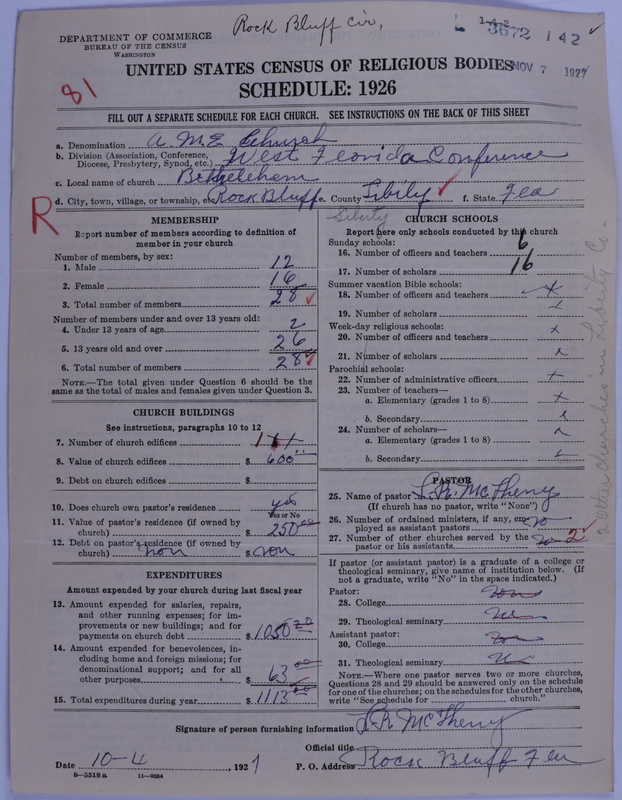 Rock Bluff Cir,
DEPARTMENT OF COMMERCE
BUREAU OF THE CENSUS
WASHINGTON
3672 142
NOV 7 1927
81
UNITED STATES CENSUS OF RELIGIOUS BODIES
SCHEDULE: 1926
FILL OUT A SEPARATE SCHEDULE FOR EACH CHURCH. SEE INSTRUCTIONS ON THE BACK OF THIS SHEET
a. Denomination A M E Church
b. Division (Association, Conference, Diocese, Presbytery, Synod, etc.) West Florida Conference
c. Local name of church Betheleham
d. City, town, village, or township, etc. Rock Bluff e. County Libily f. State Fla
Liberty
R
MEMBERSHIP
Report number of members according to definition of
member in your church
Number of members, by sex:
1. Male 12
2. Female 16
3. Total number of members 28
Number of members under and over 13 years old:
4. Under 13 years of age 2
5. 13 years old and over 26
6. Total number of members 28
NOTE.—The total given under Question 6 should be the
same as the total of males and females given under Question 3.
CHURCH BUILDINGS
See instructions, paragraphs 10 to 12
7. Number of church edifices 1
8. Value of church edifices $ 600
9. Debt on church edifices $
10. Does church own pastor's residence yes
Yes or No
11. Value of pastor's residence (if owned by
church) $ 250
12. Debt on pastor's residence (if owned by
church) non $ non
EXPENDITURES
Amount expended by your church during last fiscal year
13. Amount expended for salaries, repairs,
and other running expenses; for im-
provements or new buildings; and for
payments on church debt $ 1050
14. Amount expended for benevolences, in-
cluding home and foreign missions; for
denominational support; and for all
other purposes $ 63 00
15. Total expenditures during year $ 1113 00
CHURCH SCHOOLS
Report here only schools conducted by this church
Sunday schools:
16. Number of officers and teachers 6
17. Number of scholars 16
Summer vacation Bible schools:
18. Number of officers and teachers x
19. Number of scholars
Week-day religious schools:
20. Number of officers and teachers x
21. Number of scholars
Parochial schools:
22. Number of administrative officers
23. Number of teachers—
a. Elementary (grades 1 to 8) x
b. Secondary
24. Number of scholars—
a. Elementary (grades 1 to 8)
b. Secondary
2 other churches in Liberty Co.
PASTOR
25. Name of pastor
(If church has no pastor, write "None")
26. Number of ordained ministers, if any, em-
ployed as assistant pastors no
27. Number of other churches served by the
pastor or his assistants 2
If pastor (or assistant pastor) is a graduate of a college or
theological seminary, give name of institution below. (If
not a graduate, write "No" in the space indicated.)
Pastor:
28. College
29. Theological seminary
Assistant pastor:
30. College
31. Theological seminary
NOTE.—Where one pastor serves two or more churches,
Questions 28 and 29 should be answered only on the schedule
for one of the churches; on the schedules for the other churches,
write "See schedule for church."
Signature of person furnishing information
Official title
Date 10-4, 1927 P. O. Address Rock Bluff Fla
8—5518a 11—9064